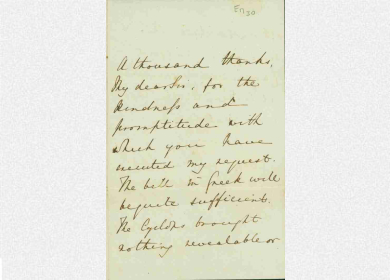 En 30
A thousand thanks,
My dear Sir, for the
kindness and
promptitude with
which you have
executed my request.
The bill in Greek will
be quite sufficient.
The Cyclops brought
nothing remarkable or